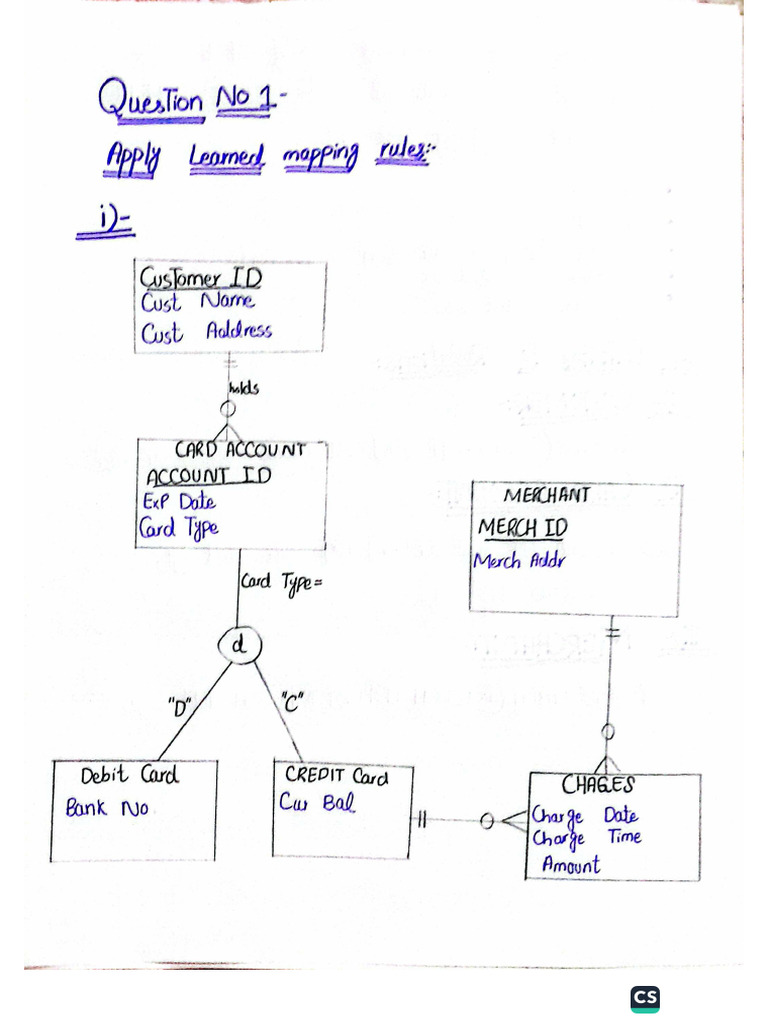 Question No 1-
Apply Learned mapping rules:-
i)-
Customer ID
Cust Name
Cust Address
holds
CARD ACCOUNT
ACCOUNT ID
Exp Date
Card Type
MERCHANT
MERCH ID
Merch Addr
Card Type=
d
"D"
"C"
Debit Card
Bank No
CREDIT Card
Cur Bal
CHAGES
Charge Date
Charge Time
Amount
CS